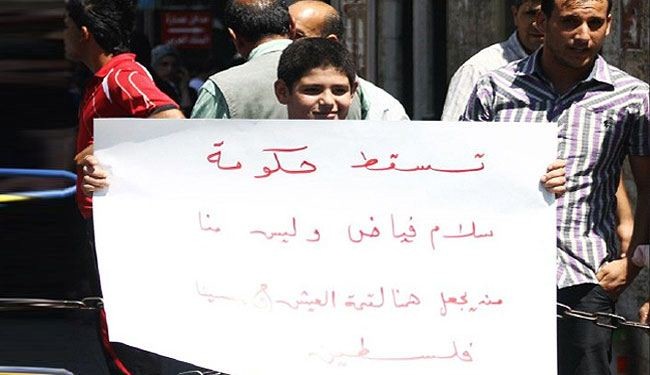 تسقط حكومة
سلام فياض وليس منا
من يجعل همنا لقمة العيش
فلسطين